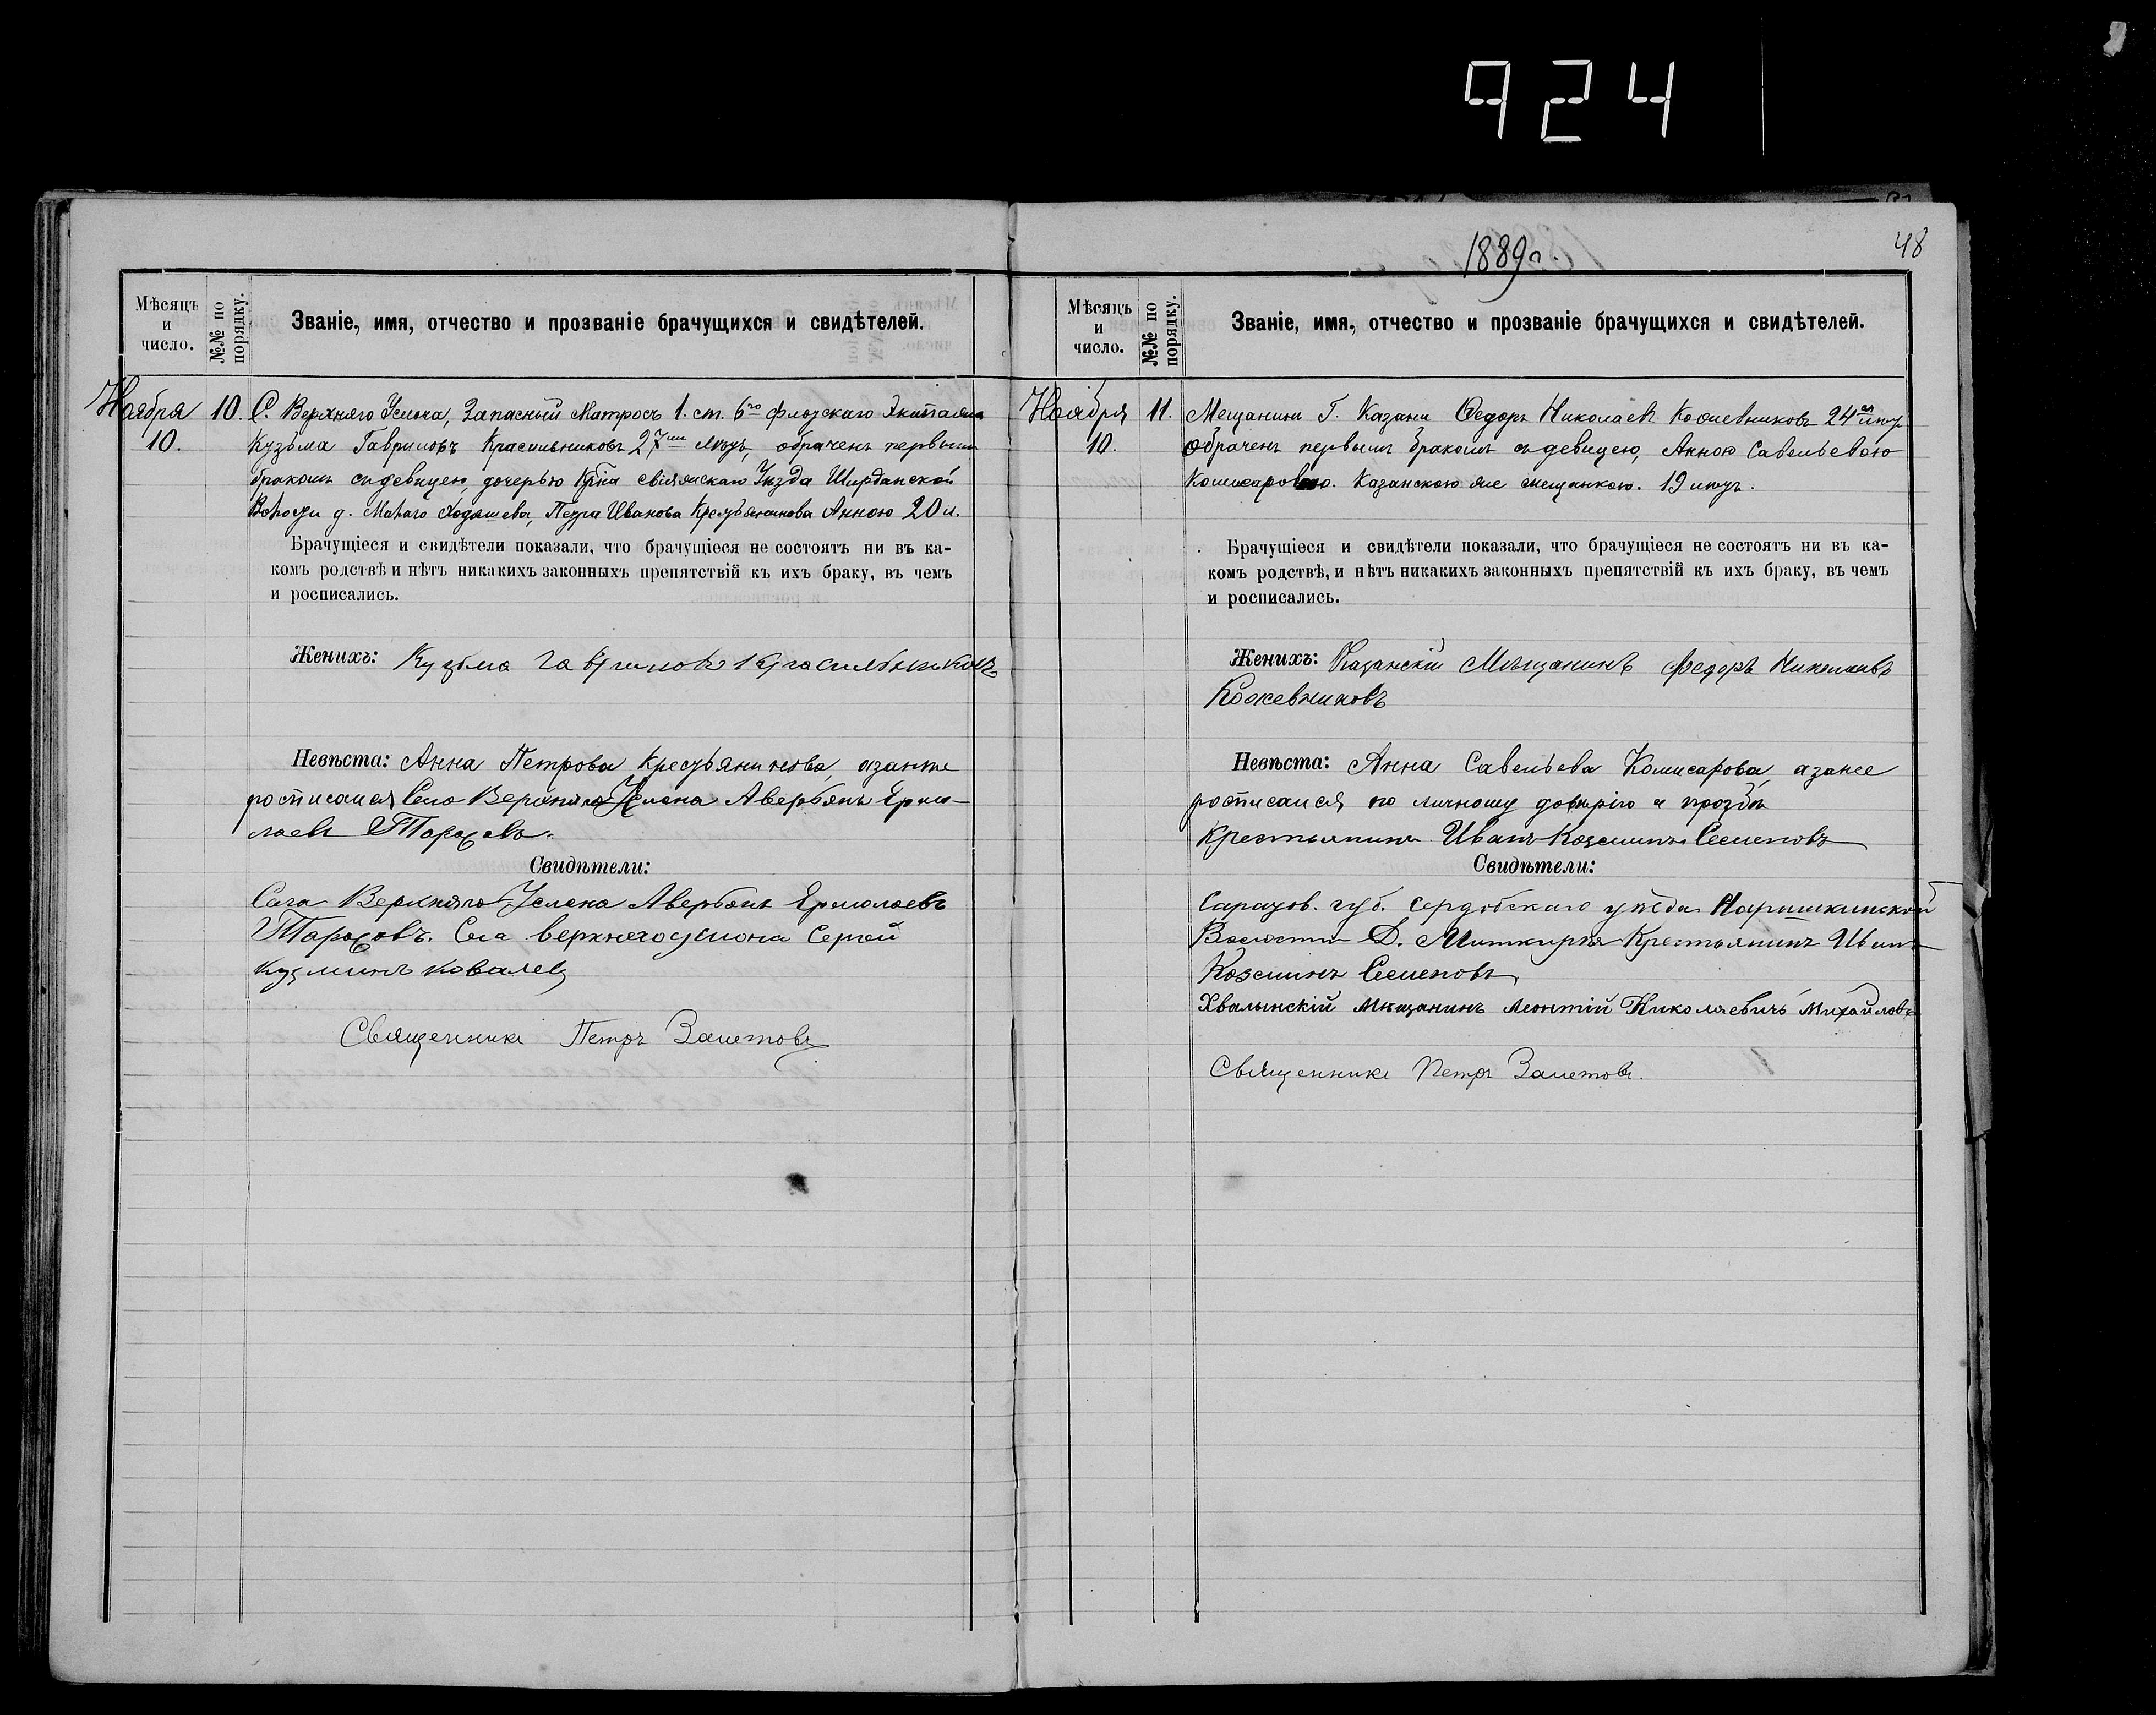 924
1889 г.
48
Мѣсяцъ и число.
№№ по порядку.
Званіе, имя, отчество и прозваніе брачущихся и свидѣтелей.
Ноября 10. С. Верхняго Услона, Запасный Матросъ 1. ст. 6го флотскаго Экипажа
10. Кузьма Гавриловъ Красильниковъ 27ми лѣтъ, обрачен первым
браком съ девицею, дочерью Кр҃на свіяжскаго Уѣзда Ширданской
Волости д. Малаго Ходяшева, Петра Иванова Крестьянинова Анною 20 л.
Брачущіеся и свидѣтели показали, что брачущіеся не состоятъ ни въ ка-
комъ родствѣ и нѣтъ никакихъ законныхъ препятствій къ ихъ браку, въ чемъ
и росписались.
Женихъ: Кузьма Гавриловъ Красильниковъ
Невѣста: Анна Петрова Крестьянинова, азанее
росписался Села Верхняго Услона Авербянъ Ермо-
лаевъ Тарасовъ.
Свидѣтели:
Села Верхняго Услона Авербянъ Ермолаевъ
Тарасовъ. Села верхнегоуслона Сергей
Кузминъ Ковалев
Священникъ Петръ Заметовъ
Мѣсяцъ и число.
№№ по порядку.
Званіе, имя, отчество и прозваніе брачущихся и свидѣтелей.
Ноября 11. Мещанин Г. Казани Ѳедоръ Николаев Кожевников 24
10. обраченъ первым браком съ девицею, Анною Савельевою
Комисаровою. Казанскою же мещанкою. 19 лѣтъ.
Брачущіеся и свидѣтели показали, что брачущіеся не состоятъ ни въ ка-
комъ родствѣ, и нѣтъ никакихъ законныхъ препятствій къ ихъ браку, въ чемъ
и росписались.
Женихъ: Казанскій Мѣщанинъ Ѳедоръ Николаивъ
Кожевниковъ
Невѣста: Анна Савельева Комисарова, азанее
росписался, по личному довѣрію и прозбѣ
Крестьянинъ Иванъ Козминъ Семеновъ
Свидѣтели:
Саратов. губ. Сердобскаго уѣзда Нарышкинской
Волости Д. Миткирея Крестьянинъ Иванъ
Козминъ Семеновъ
Хвалынскій мѣщанинъ Леонтій Николаевичъ Михайловъ
Священникъ Петръ Заметовъ.